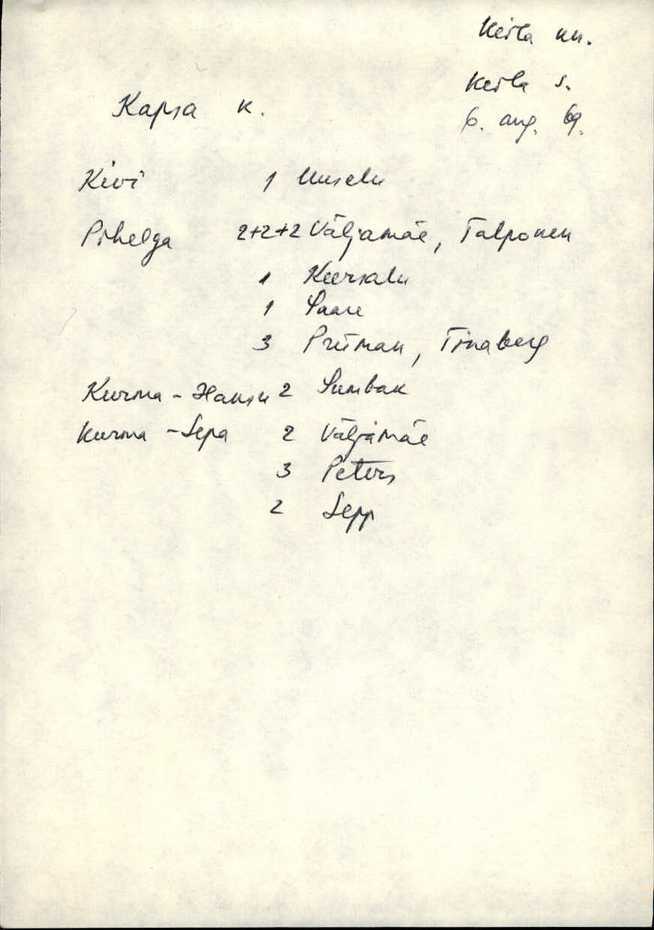 Keila khn.
Keila s.
Kapsa k.
6. aug. 69.
Kivi 1 Uuselu
Pihelga 2+2+2 Väljamäe, Talponen
1 Keersalu
1 Saare
3 Priiman, Trnaberg
Kurma - Hansu 2 Sumbak
Kurma - Sepa 2 Väljamäe
3 Peters
2 Sepp